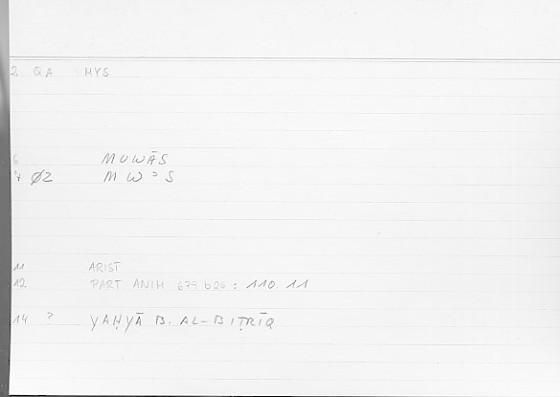 2 QA MYS
6 MUWĀS
7 Ø2 MWʾS
11 ARIST
12 PART ANIM 679 b26 : 110.11
14 ? YAḤYĀ B. AL-BIṬRĪQ